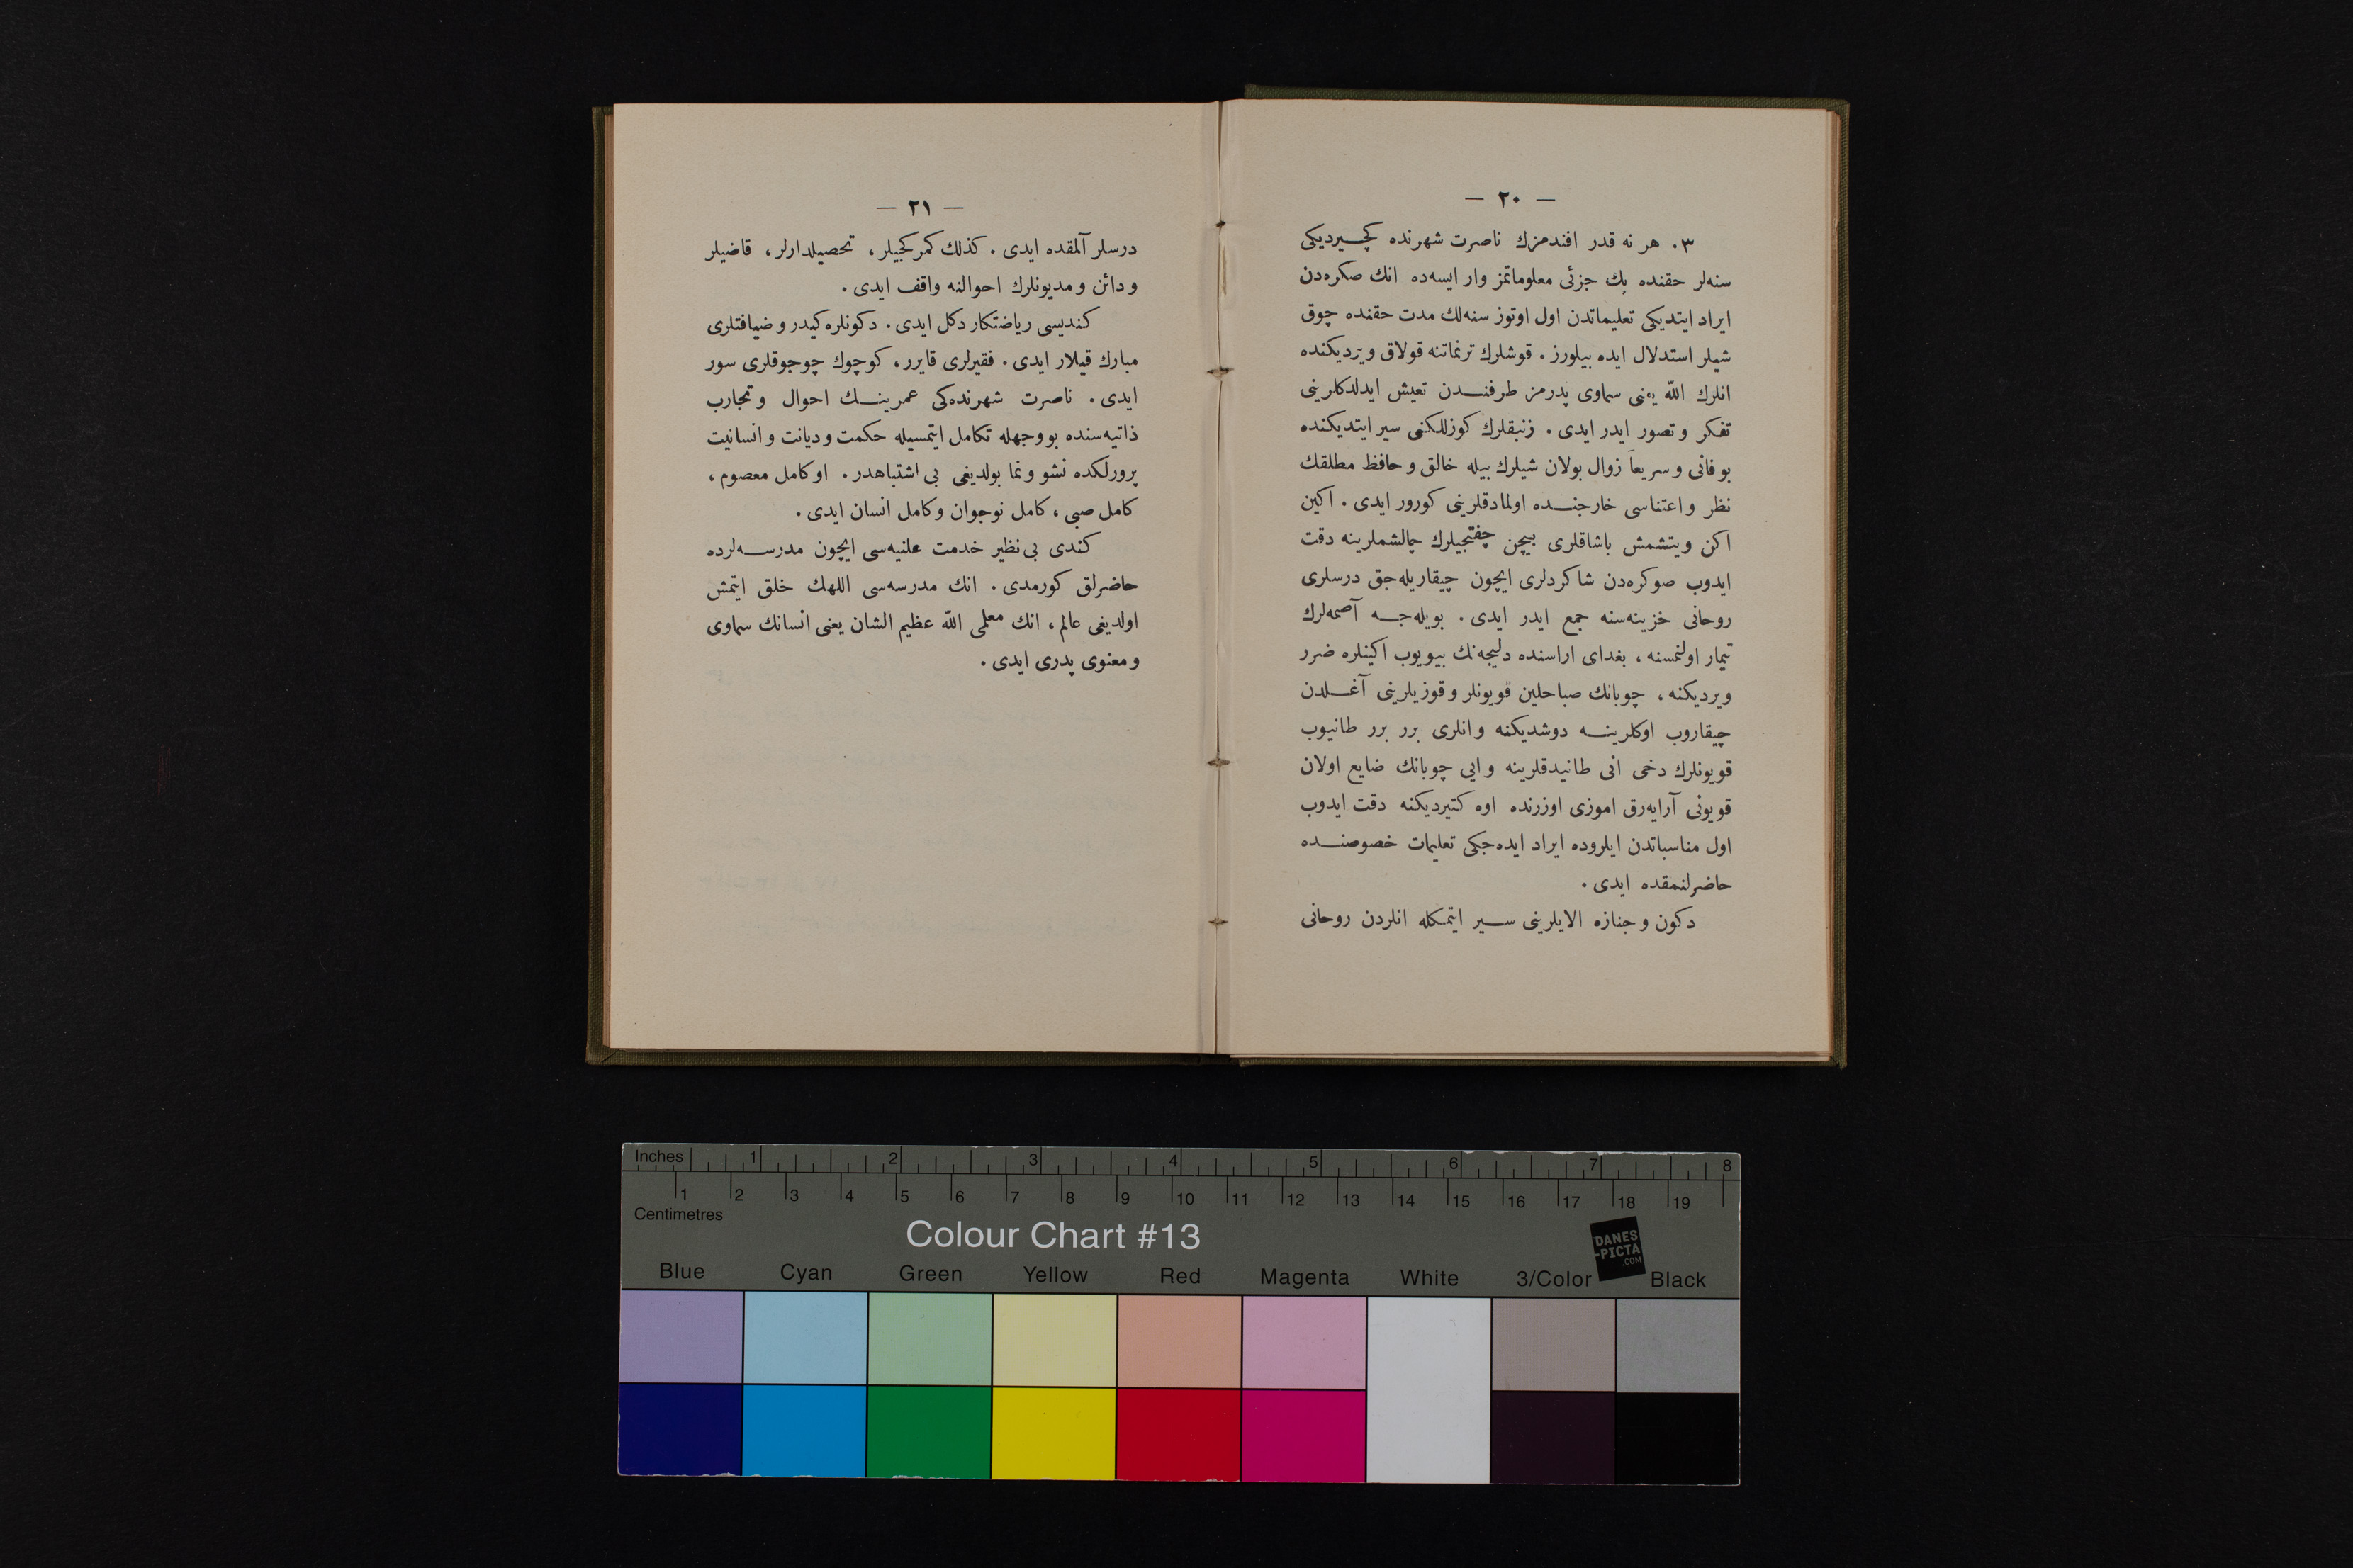 — ٢٠ —
٣. هر نه قدر افندمزك ناصرت شهرنده كچيرديكى
سنه‌لر حقنده پك جزئى معلوماتمز وار ايسه‌ده انك صكره‌دن
ايراد ايتديكى تعليماتدن اول اوتوز سنه‌لك مدت حقنده چوق
شيلر استدلال ايده بيلورز. قوشلرك ترنماتنه قولاق ويرديكنده
انلرك اللّه يعنى سماوى پدرمز طرفندن تعيش ايدلدكلرينى
تفكر و تصور ايدر ايدى. زنبقلرك كوزللكنى سير ايتديكنده
بو فانى و سريعاً زوال بولان شيلرك بيله خالق و حافظ مطلقك
نظر و اعتناسى خارجنده اولمادقلرينى كورور ايدى. اكين
اكن ويتشمش باشاقلرى بيچن چفتجيلرك چالشملرينه دقت
ايدوب صوكره‌دن شاكردلرى ايچون چيقاريله‌جق درسلرى
روحانى خزينه‌سنه جمع ايدر ايدى. بويله‌جه آصمه‌لرك
تيمار اولنمسنه، بغداى اراسنده دليجه‌نك بيويوب اكينلره ضرر
ويرديكنه، چوبانك صباحلين قويونلر و قوزيلرينى آغلدن
چيقاروب اوكلرينه دوشديكنه و انلرى برر برر طانيوب
قويونلرك دخى انى طانيدقلرينه و ايى چوبانك ضايع اولان
قويونى آرايه‌رق اموزى اوزرنده اوه كتيرديكنه دقت ايدوب
اول مناسباتدن ايلروده ايراد ايده‌جكى تعليمات خصوصنده
حاضرلنمقده ايدى.
دكون و جنازه الايلرينى سير ايتمكله انلردن روحانى
— ٢١ —
درسلر آلمقده ايدى. كذلك كمركجيلر، تحصيلدارلر، قاضيلر
و دائن و مديونلرك احوالنه واقف ايدى.
كنديسى رياضتكار دكل ايدى. دكونلره كيدر و ضيافتلرى
مبارك قيلار ايدى. فقيرلرى قايرر، كوچوك چوجوقلرى سور
ايدى. ناصرت شهرنده‌كى عمرينك احوال و تجارب
ذاتيه‌سنده بووجهله تكامل ايتمسيله حكمت و ديانت و انسانيت
پرورلكده نشو و نما بولديغى بى اشتباهدر. او كامل معصوم،
كامل صبى، كامل نوجوان و كامل انسان ايدى.
كندى بى نظير خدمت علنيه‌سى ايچون مدرسه‌لرده
حاضرلق كورمدى. انك مدرسه‌سى اللهك خلق ايتمش
اولديغى عالم، انك معلمى اللّه عظيم الشان يعنى انسانك سماوى
و معنوى پدرى ايدى.
Inches 1 2 3 4 5 6 7 8
1 2 3 4 5 6 7 8 9 10 11 12 13 14 15 16 17 18 19
Centimetres
Colour Chart #13
DANES
-PICTA
.COM
Blue Cyan Green Yellow Red Magenta White 3/Color Black